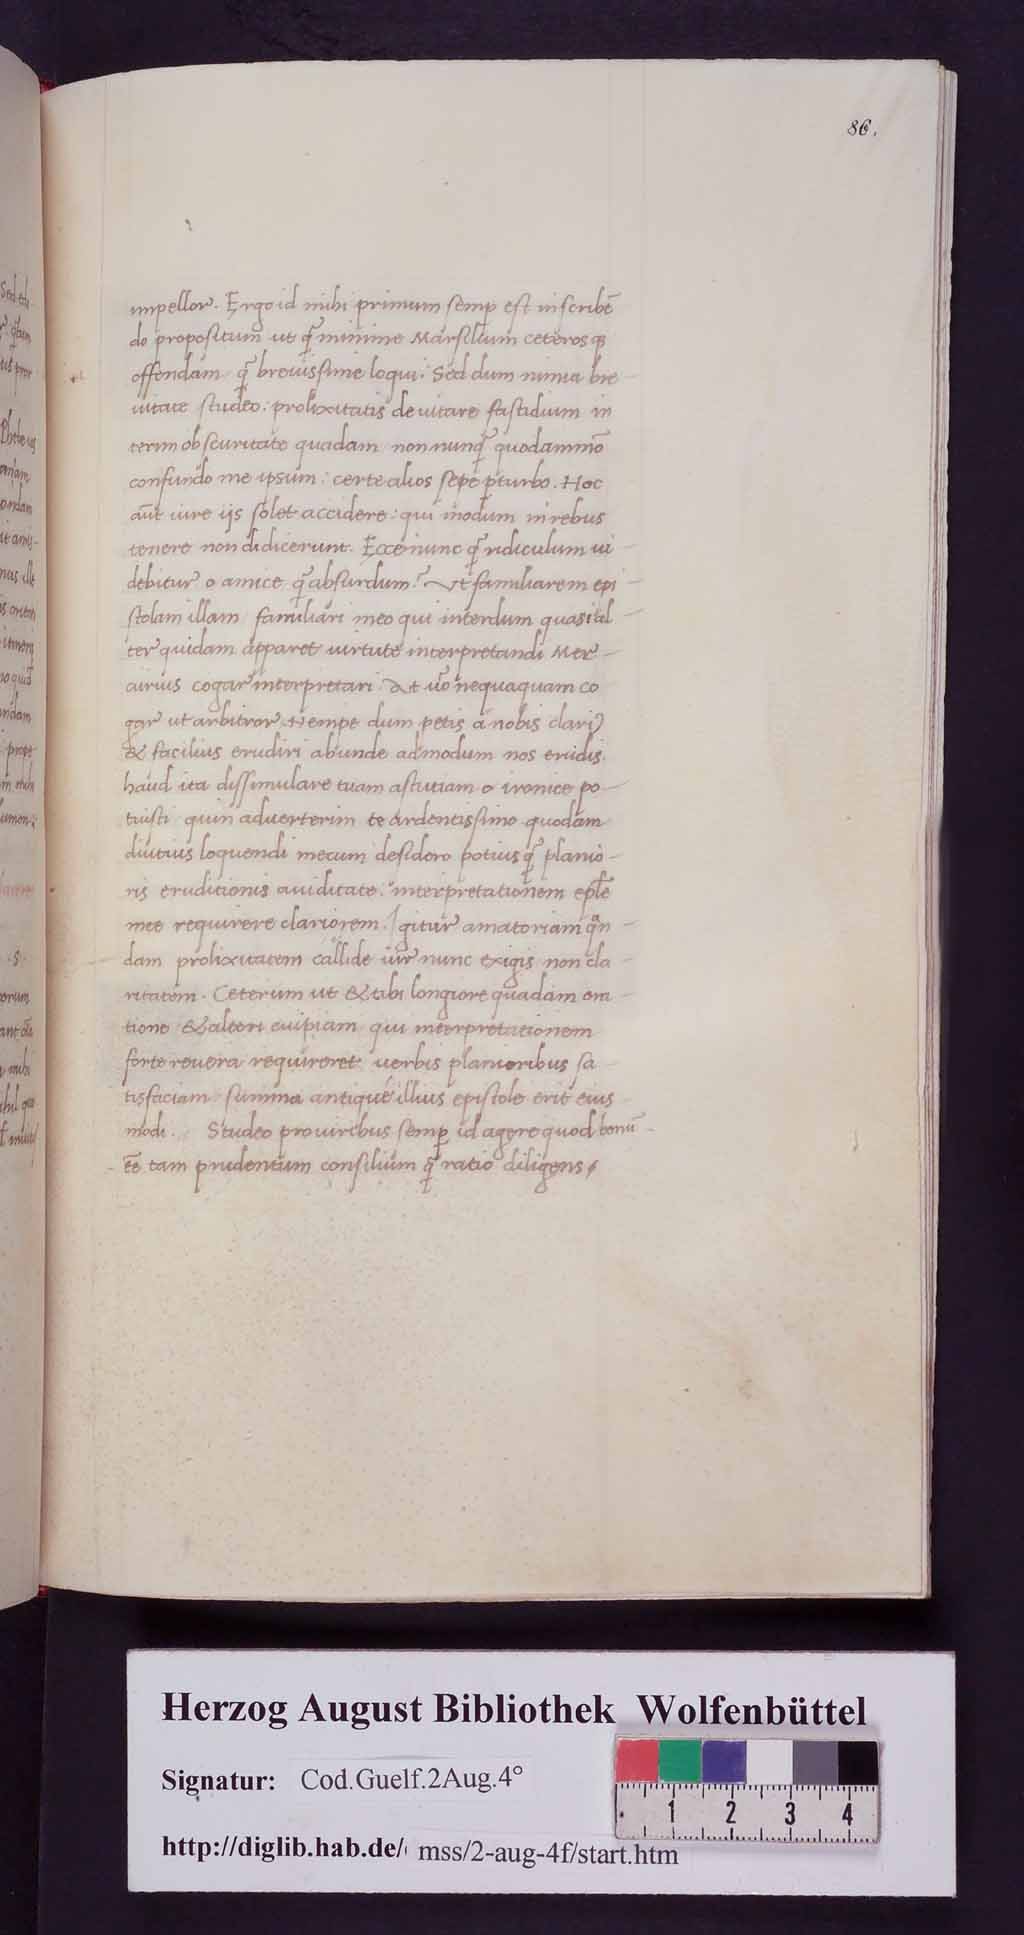 86.
impellor. Ergo id mihi primum semp est in scribē
do propositum ut q̄ minime Marsilium ceterosq;
offendam q̄ brevissime loqui: Sed dum nimia bre-
vitate studeo: prolixitatis devitare fastidium in
terim obscuritate quadam non nunq̄ quodammō
confundo me ipsum: certe alios sepe pturbo. Hoc
aūt iure ijs solet accidere: qui modum in rebus
tenere non didicerunt. Ecce nunc q̄ ridiculum vi-
debitur o amice q̄ absurdum? Ut familiarem epi-
stolam illam familiari meo qui interdum quasi al-
ter quidam apparet virtute interpretandi Mer-
curius cogar interpretari. At vō nequaquam co
gar ut arbitror. Nempe dum petis a nobis clari9
& facilius erudiri abunde admodum nos erudis.
haud ita dissimulare tuam astutiam o ironice po-
tuisti quin adverterim te ardentissimo quodam
diutius loquendi mecum desiderio potiusq̄ planio-
ris eruditionis aviditate: interpretationem eple
mee requirere clariorem. Igitur amatoriam qn-
dam prolixitatem callide vir nunc exigis non cla-
ritatem. Ceterum ut & tibi longiore quadam ora-
tione & alteri cuipiam qui interpretationem
forte revera requireret verbis planioribus sa-
tisfaciam summa antique illius epistole erit eius-
modi. Studeo pro viribus semp id agere quod bonū-
ēe tam prudentium consilium q̄ ratio diligens
Herzog August Bibliothek Wolfenbüttel
Signatur: Cod.Guelf.2Aug.4°
http://diglib.hab.de/ mss/2-aug-4f/start.htm
1 2 3 4